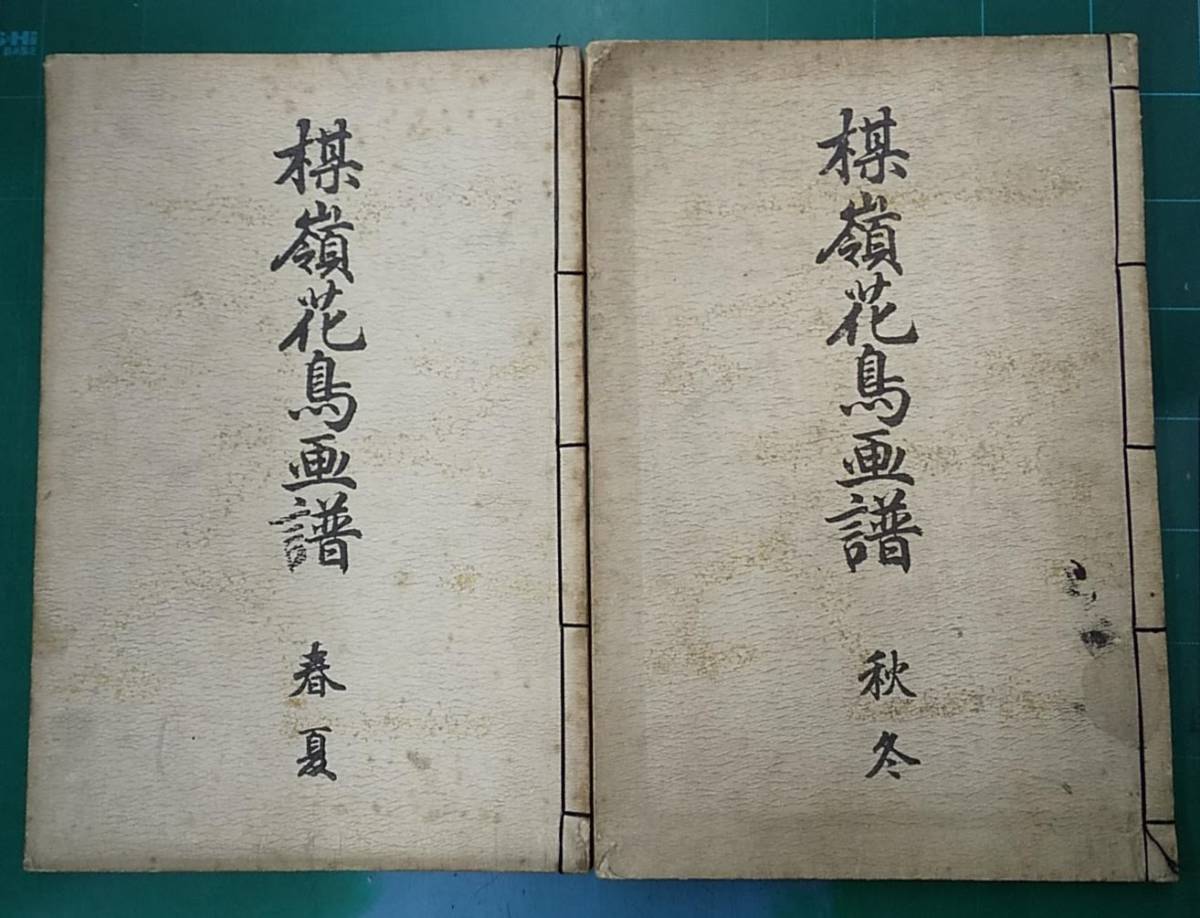 楳嶺花鳥画譜
春
夏
楳嶺花鳥画譜
秋
冬